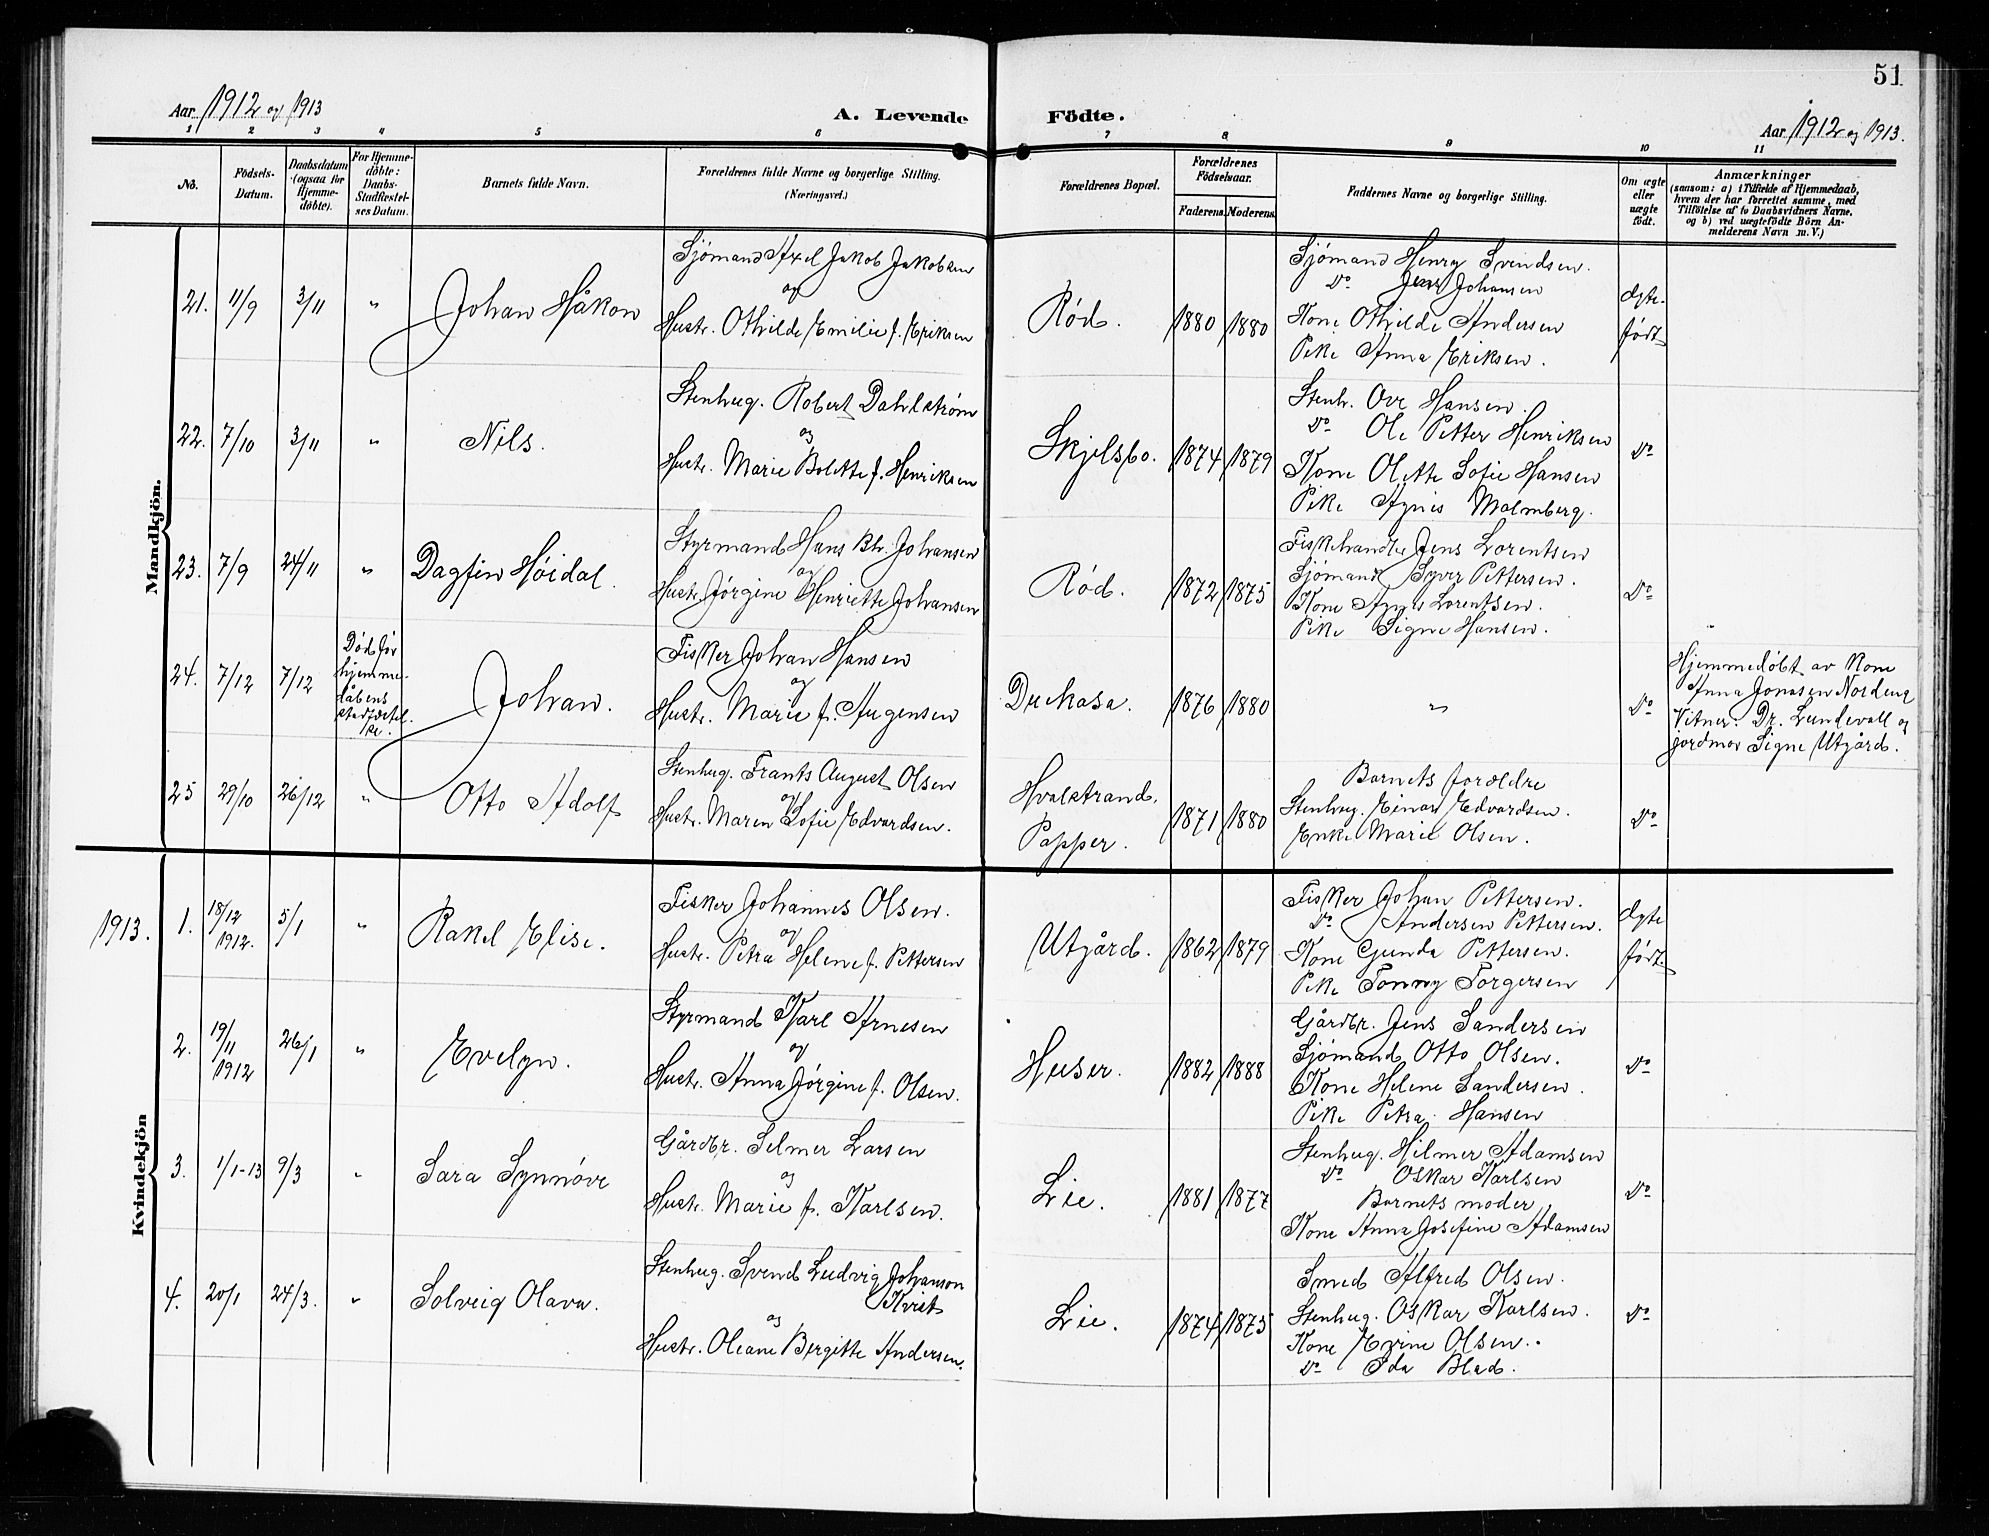 51
Aar 1912 og 1913
A. Levende Födte.
Aar 1912 og 1913.
1 2 3 4 5 6 7 8 9 10 11
No.
Födsels-Datum.
Daabsdatum (ogsaa for Hjemme-döbte).
For Hjemme-döbte: Daabs-Stadfæstel-ses Datum.
Barnets fulde Navn.
Forældrenes fulde Navne og borgerlige Stilling.
(Næringsvei.)
Forældrenes Bopæl.
Forældrenes Födselsaar.
Faderens. Moderens.
Faddernes Navne og borgerlige Stilling.
Om ægte eller uægte født.
Anmærkninger
(saasom: a) i Tilfælde af Hjemmedaab,
hvem der har forrettet samme, med
Tilföielse af to Daabsvidners Navne,
og b) ved uægtefödte Börn An-
melderens Navn m. V.)
Mandkjön.
21. 11/9 3/11 " Johan Håkon
Sjømand Axel Jakob Jakobsen
og
Hustr. Othilde Emilie f. Eriksen
Rød. 1880 1880
Sjømand Henry Svendsen.
Do Jens Johansen
Kone Othilde Andersen
Pike Anna Eriksen.
Ægte-
født
22. 7/10 3/11 " Nils.
Stenhug. Robert Dahlstrøm
og
Hustr. Marie Bolette f. Henriksen
Skjelsbo. 1874 1879
Stenh. Ove Hansen.
Do Ole Petter Henriksen
Kone Olette Sofie Hansen
Pike Agnes Malmberg.
Do
23. 7/9 24/11 " Dagfin Høidal.
Styrmand Hans Bh. Johansen
og
Hustr. Jørgine Henriette Johansen
Rød. 1872 1875
Fiskehandler Jens Lorentsen
Sjømand Syver Pettersen.
Kone Agnes Lorentsen.
Pike Signe Hansen.
Do
24. 7/12 7/12
Død før
hjemme-
dåbens
stadfæstel-
se.
Johan.
Fisker Johan Hansen
og
Hustr. Marie f. Augensen
Duekasa. 1876 1880
"
Do
Hjemmedøbt av Kone
Anna Jonasen Nordeng
Vitner: Dr. Lundevall og
jordmor Signe Utgård.
25 29/10 26/12 " Otto Adolf
Stenhug. Frants August Olsen
og
Hustr. Maren Sofie Edvardsen.
Hvalstrand.
Papper.
1871 1880
Barnets forældre
Stenhug. Einar Edvardsen.
Enke Marie Olsen.
Do
1913.
Kvindekjön
1. 18/12 1912. 5/1 " Rakel Elise.
Fisker Johannes Olsen.
og
Hustr. Petra Helene f. Pettersen
Utgård. 1862 1879
Fisker Johan Pettersen.
Do Andersen Pettersen.
Kone Gunda Pettersen.
Pike Tonny Torgersen
Ægte
født
2. 19/11 1912 26/1 " Evelyn.
Styrmand Karl Arnesen
og
Hustr. Anna Jørgine f. Olsen.
Huser. 1882 1888
Gårdbr. Jens Sandersen
Sjømand Otto Olsen.
Kone Helene Sandersen.
Pike Petra Hansen
Do
3. 1/1-13 9/3 " Sara Synnøve
Gårdbr. Selmer Larsen
og
Hustr. Marie f. Karlsen.
Lie. 1881 1877
Stenhug. Hilmer Adamsen
Do Oskar Karlsen
Barnets moder
Kone Anna Josefine Adamsen
Do
4. 20/1 24/3. " Solveig Olava.
Stenhug. Svend Ludvig Johanson
Kvist
og
Hustr. Oleane Bergitte Andersen.
Lie. 1874 1875
Smed Alfred Olsen.
Stenhug. Oskar Karlsen.
Kone Evine Olsen.
Do Ida Blad.
Do